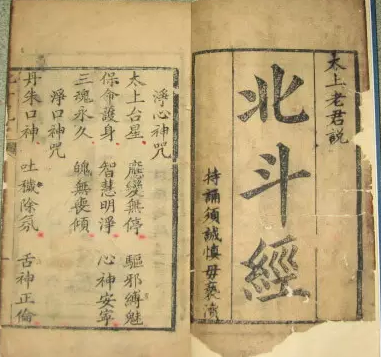 太上老君説
北斗經
持誦須誠慎毋褻瀆
淨心神咒
太上台星　應變無停　驅邪縛魅
保命護身　智慧明淨　心神安寧
三魂永久　魄無喪傾
淨口神咒
丹朱口神　吐穢除氛　舌神正倫